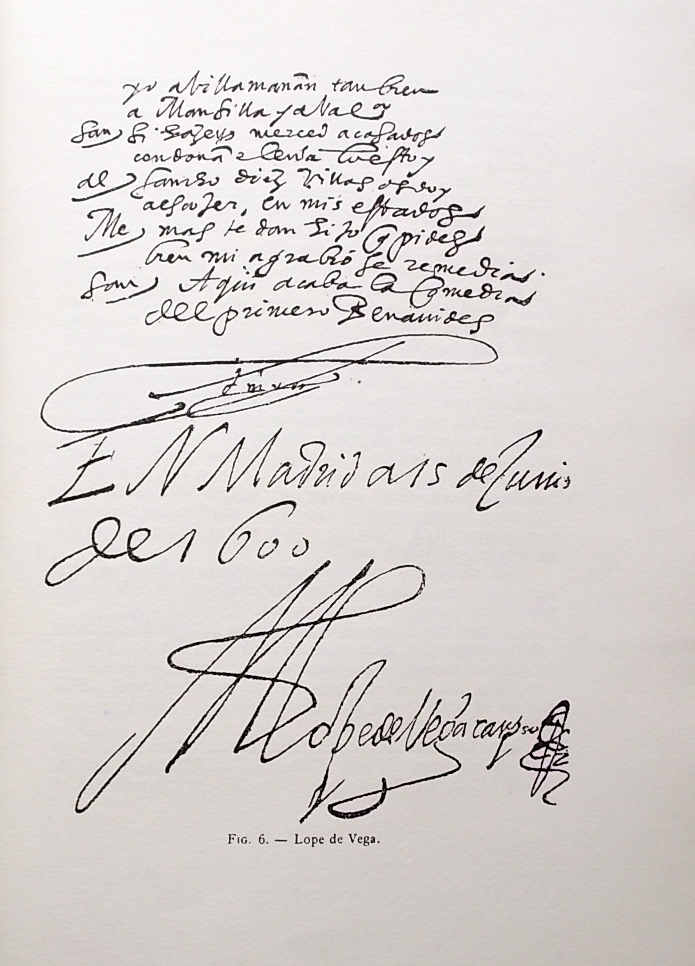 yo a Villamañan tanbien
a Mansilla y a Val
San) Si hazeys merced a casados
con doña elena tiesto y
al) Sancho diez Villas os doy
a escojer, en mis estados
Me) mas te dan Si lo q pides
bien mi agrabio se remedia.
San) Aqui acaba la Comedia
del primero Benauides
EN Madrid a 15 de Junio
de 1600
M Lope de Vega carpio
FIG. 6. — Lope de Vega.